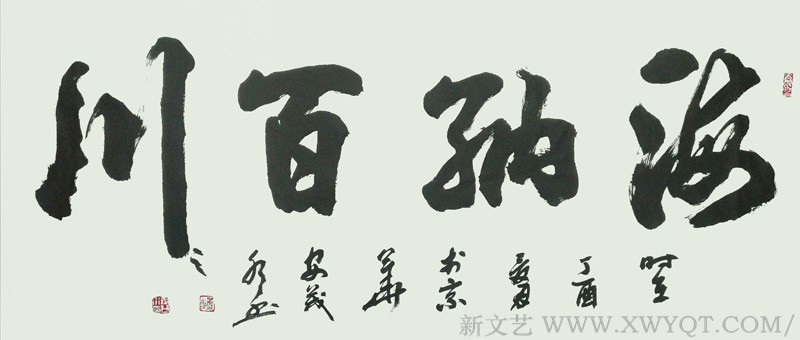 海纳百川
时在
丁酉
夏月
于京
华
安茂
之
新文艺 WWW.XWYQT.COM/